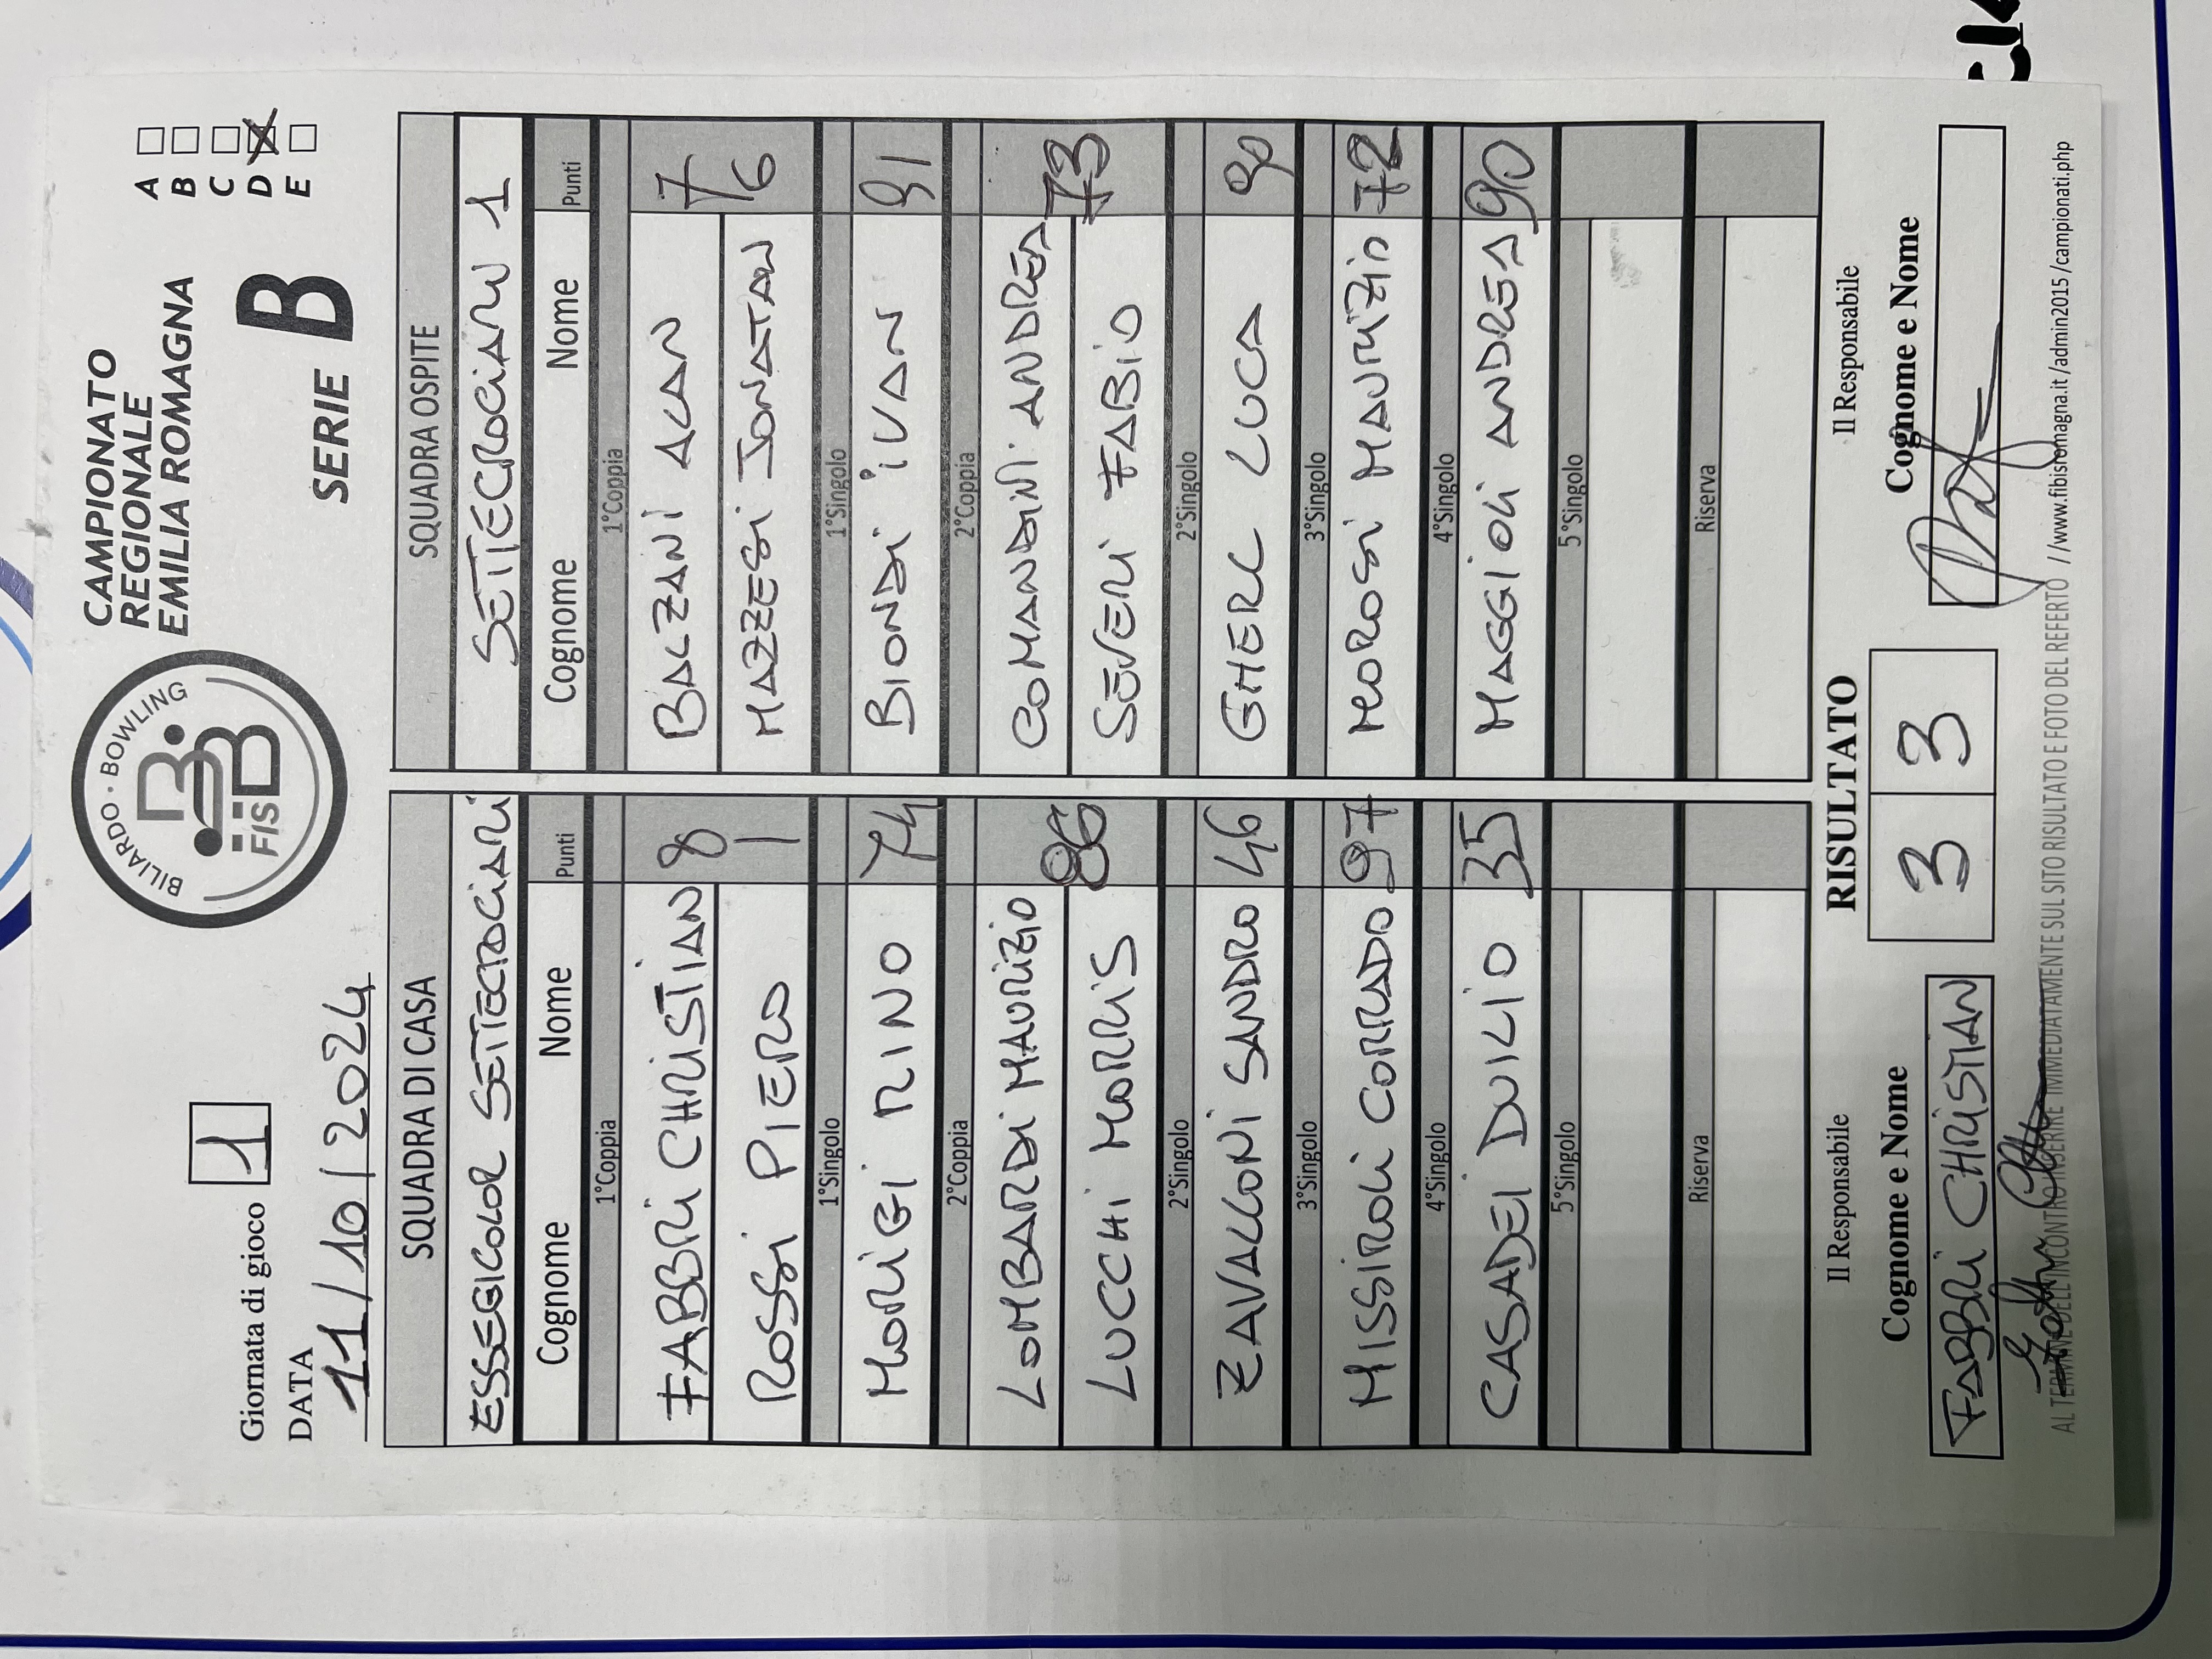 BILIARDO · BOWLING
FISBB
CAMPIONATO
REGIONALE
EMILIA ROMAGNA
A
B
C
D
E
Giornata di gioco 1
DATA
11/10/2024
SERIE B
SQUADRA DI CASA SQUADRA OSPITE
ESSEGICOLOR SETTECROCIARI SETTECROCIARI 1
Cognome Nome Punti Cognome Nome Punti
1°Coppia 1°Coppia
FABBRI CHRISTIAN 8 BALZANI ALAN 7
ROSSI PIERO 1 MAZZESI JONATAN 6
1°Singolo 1°Singolo
MORIGI RINO 74 BIONDI IVAN 91
2°Coppia 2°Coppia
LOMBARDI MAURIZIO COMANDINI ANDREA
86 73
LUCCHI MORRIS SEVERI FABIO
2°Singolo 2°Singolo
ZAVALLONI SANDRO 46 GHERL LUCA 90
3°Singolo 3°Singolo
MISSIROLI CORRADO 97 MOROSI MAURIZIO 72
4°Singolo 4°Singolo
CASADEI DUILIO 35 MAGGIOLI ANDREA 90
5°Singolo 5°Singolo
Riserva Riserva
Il Responsabile RISULTATO Il Responsabile
Cognome e Nome 3 3 Cognome e Nome
FABBRI CHRISTIAN
AL TERMINE DELL'INCONTRO INSERIRE IMMEDIATAMENTE SUL SITO RISULTATO E FOTO DEL REFERTO //www.fibisromagna.it/admin2015/campionati.php